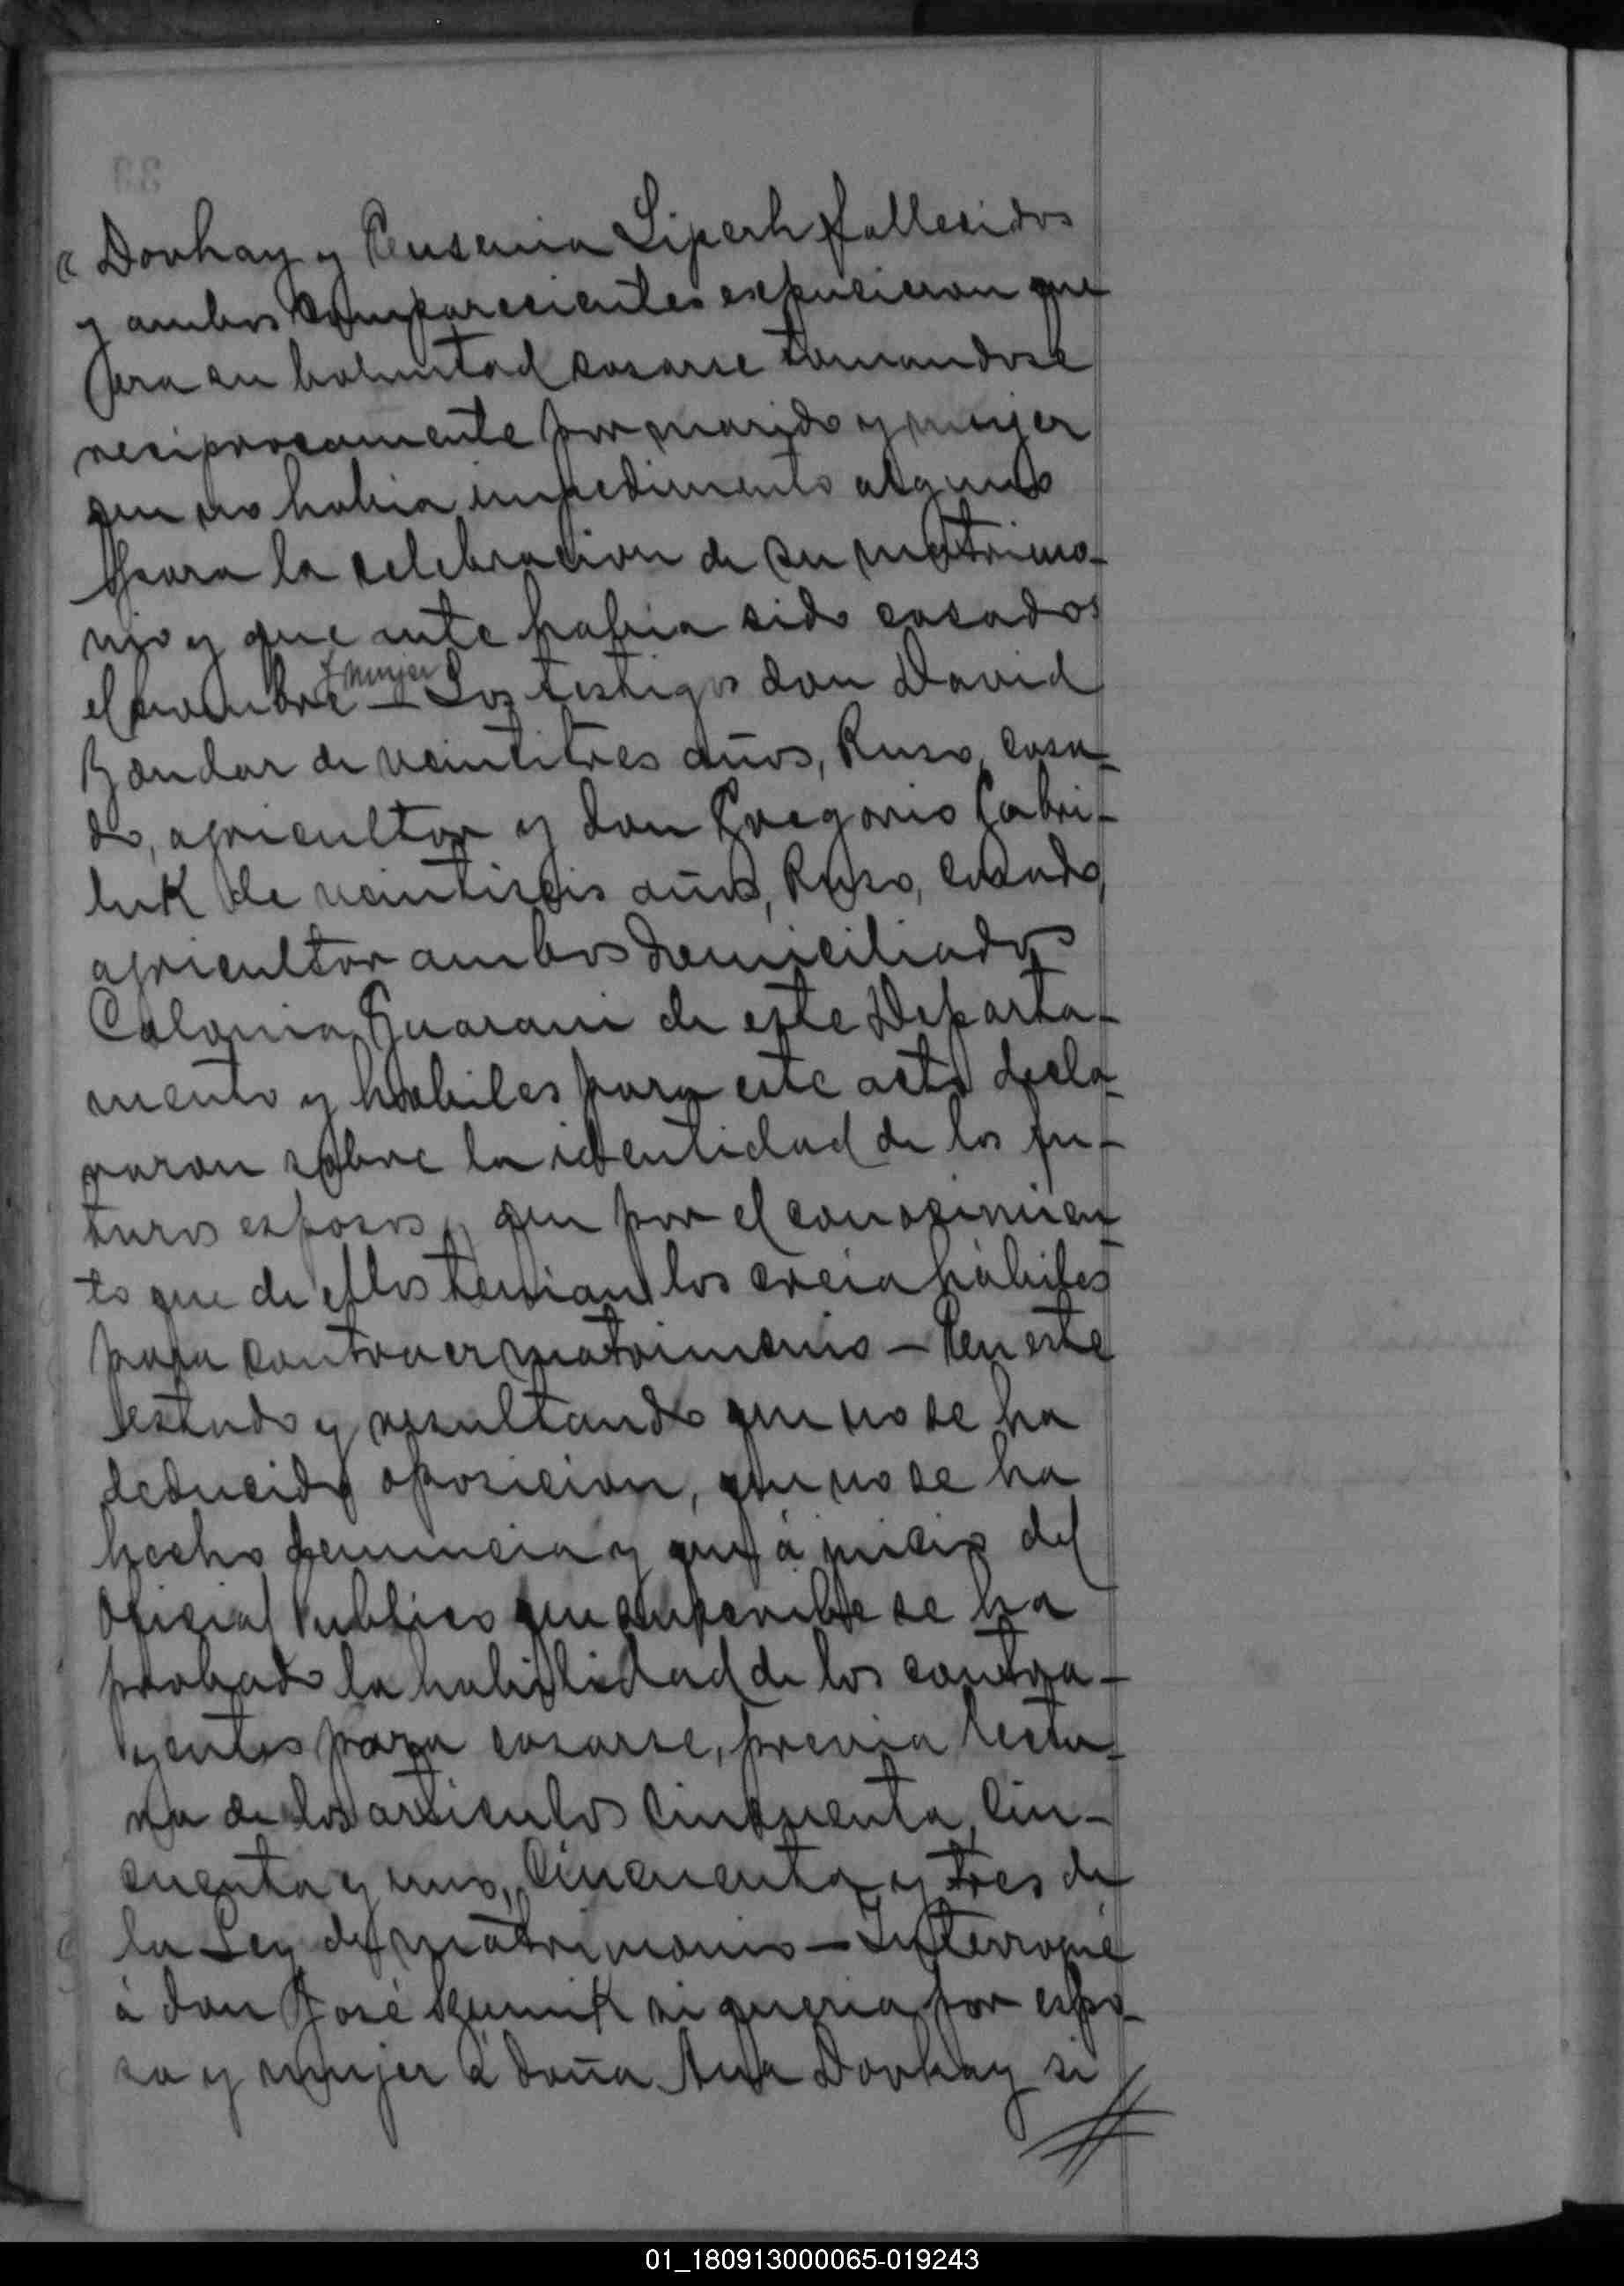 Dovhay y Eusenia Liperh fallesidos
y ambos comparecientes expucieron que
era su boluntad casarse tomandose
reciprocamente por marido y mujer
que no habia impedimento alguno
para la celebracion de su matrimo-
nio y que ante habia sido casados
el hombre y mujer — Los testigos don David
Bondar de veintitres años, Ruso, casa-
do, agricultor y don Gregorio Gabri-
luk de veintiseis años, Ruso, casado,
agricultor ambos domiciliados
Colonia Guarani de este Departa-
mento y habiles para este acto decla-
raron sobre la identidad de los fu-
turos esposos y que por el conocimien-
to que de ellos tenian los creia hábiles
para contraer matrimonio — En este
estado y resultando que no se ha
deducido oposicion, que no se ha
hecho denuncia y que á juicio del
Oficial Publico que suscribe se ha
probado la habilidad de los contra-
yentes para casarse, previa lectu-
ra de los articulos cincuenta, cin-
cuenta y uno, cincuenta y tres de
la Ley de matrimonio — Interrogué
á don José Kunik si queria por espo-
sa y mujer á doña Ana Dovhay si
01_180913000065-019243